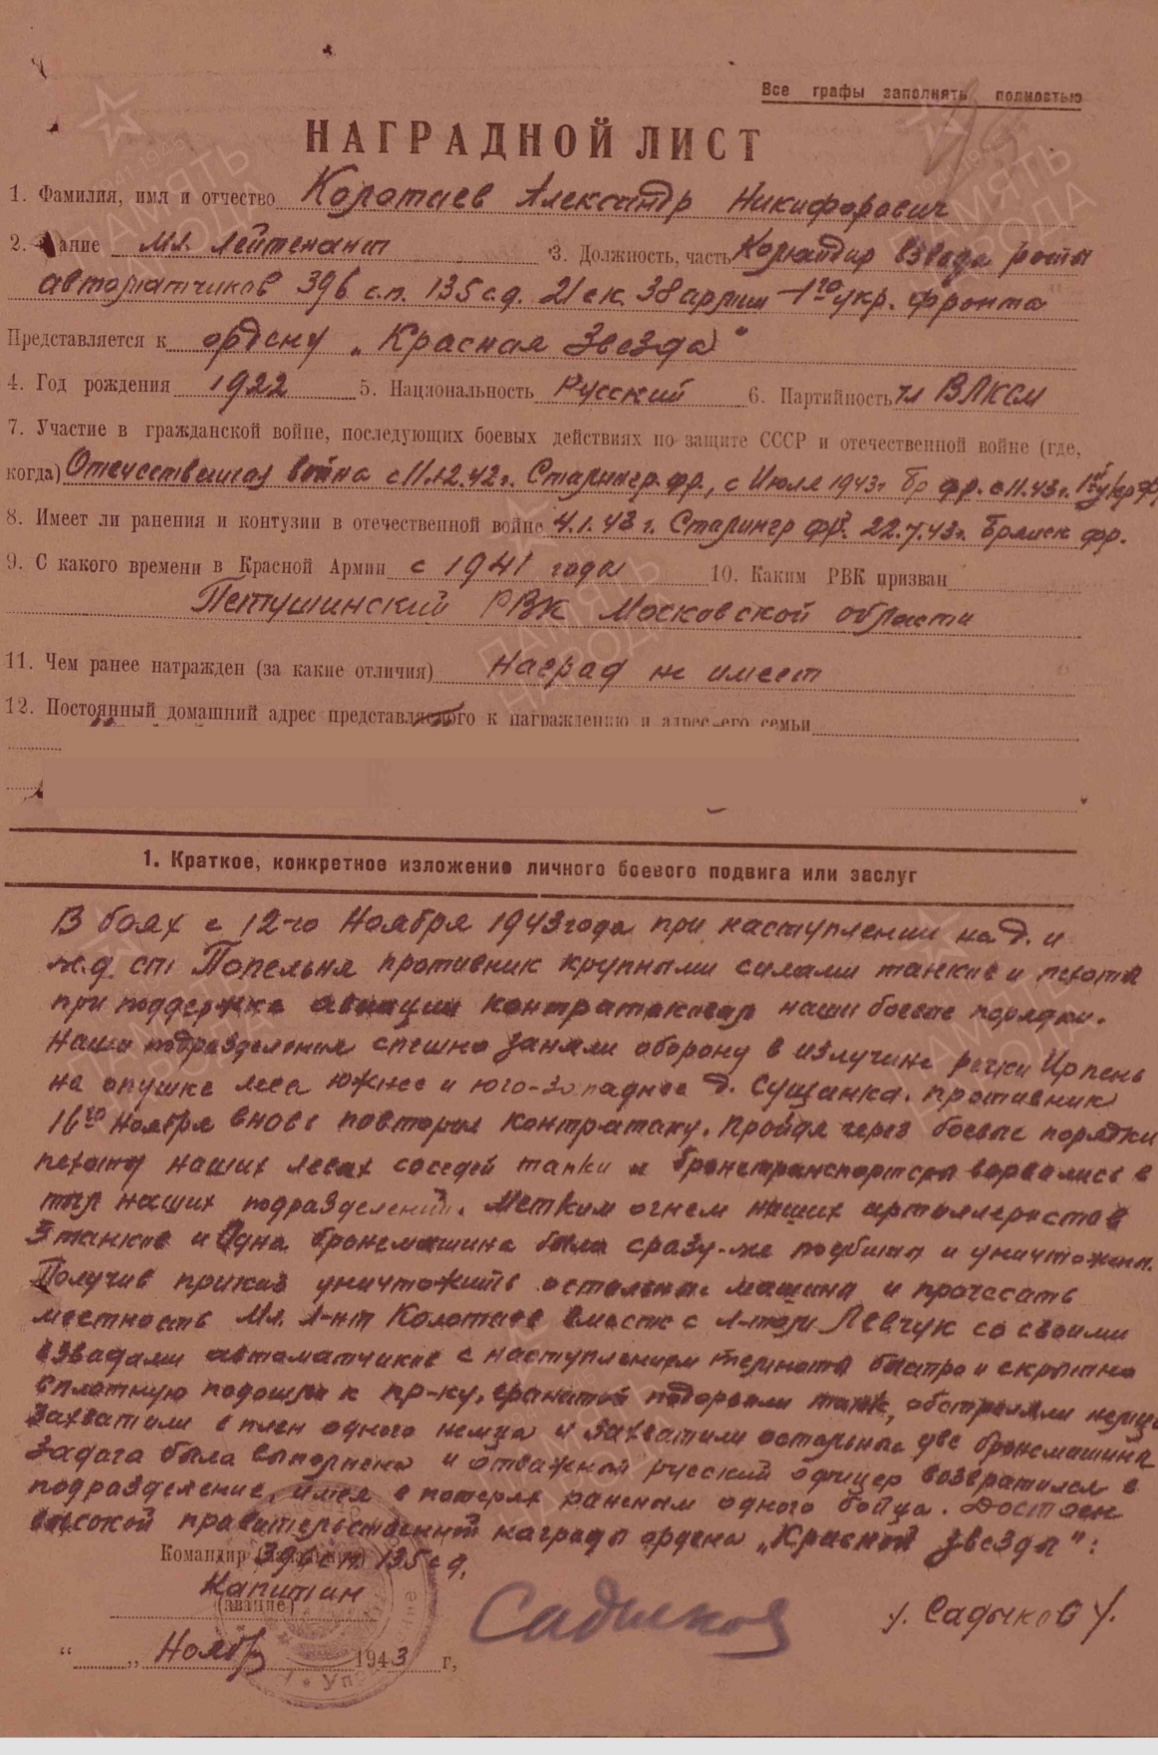 Все графы заполнять полностью
НАГРАДНОЙ ЛИСТ
1. Фамилия, имя и отчество Коротаев Александр Никифорович
2. Звание Мл. лейтенант 3. Должность, часть Командир взвода роты
автоматчиков 396 с.п. 135 с.д. 21 ск. 38 армии 1го укр. фронта
Представляется к ордену „Красная Звезда"
4. Год рождения 1922 5. Национальность Русский 6. Партийность чл ВЛКСМ
7. Участие в гражданской войне, последующих боевых действиях по защите СССР и отечественной войне (где,
когда) Отечественная война с 11.12.42г. Сталингр. фр., с Июля 1943г Бр фр. с 11.43г. 1й Укр фр
8. Имеет ли ранения и контузии в отечественной войне 4.1.43 г. Сталингр фр. 22.7.43г. Брянск фр.
9. С какого времени в Красной Армии с 1941 года 10. Каким РВК призван
Петушинский РВК Московской области
11. Чем ранее награжден (за какие отличия) Наград не имеет
12. Постоянный домашний адрес представляемого к награждению и адрес его семьи
1. Краткое, конкретное изложение личного боевого подвига или заслуг
В боях с 12-го Ноября 1943 года при наступлении на д. и
ж.д. ст. Попельня противник крупными силами танков и пехоты
при поддержке авиации контратаковал наши боевые порядки.
Наши подразделения спешно заняли оборону в излучине речки Ирпень
на опушке леса южнее и юго-западнее д. Сущанка. противник
16го Ноября вновь повторил контратаку. Пройдя через боевые порядки
пехоты наших соседей танки и бронетранспортеры ворвались в
тыл наших подразделений. Метким огнем наших артиллеристов
танков и одна бронемашина была сразу-же подбита и уничтожена.
Получив приказ уничтожить остальные машины и прочесать
местность Мл. Л-нт Колотаев вместе с Л-том Левчук со своими
взводами автоматчиков с наступлением темноты быстро и скрытно
вплотную подошли к пр-ку, гранатой подорвали танк, обстреляли немцев
Захватили в плен одного немца и захватили остальные две бронемашины
Задача была выполнена и отважный русский офицер возвратился в
подразделение, имея в потерях раненым одного бойца. Достоен
высокой правительственной награды ордена „Красной звезды":
Командир 396 с.п. 135 с.д.
Капитан
(звание)
Садыков /. Садыков /.
„ " Ноябр 1943 г,
ПАМЯТЬ НАРОДА